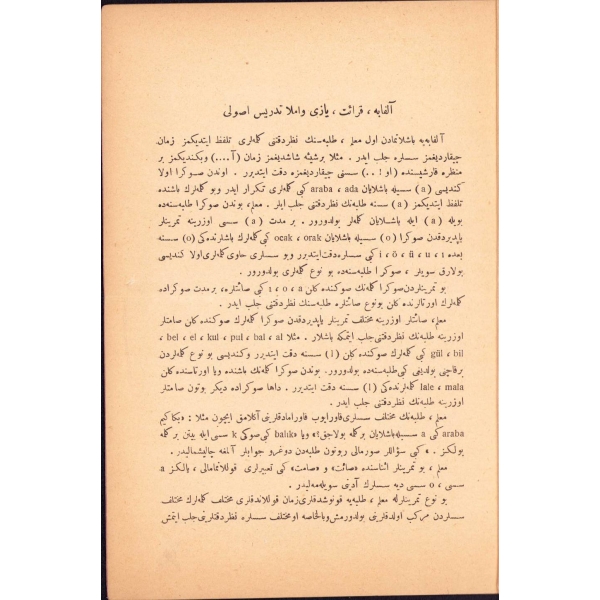 آلفابه ، قرائت ، یازی واملا تدریس اصولی
آلفابه‌یه باشلاتمادن اول معلم ، طلبه‌سنك نظردقتنی كله‌لری تلفظ ایتدیكمز زمان
چیقاردیغمز سسلره جلب ایدر . مثلا برشیئه شاشدیغمز زمان (آ....) وبكندیكمز بر
منظره قارشیسنده (او ! ..) سسنی چیقاردیغمزه دقت ایتدیرر . اوندن صوكرا اولا
كندیسی (a) سسیله باشلایان araba ، ada كبی كله‌لری تكرار ایدر وبو كله‌لرك باشنده
تلفظ ایتدیكمز (a) سسنه طلبه‌نك نظردقتنی جلب ایلر . معلم ، بوندن صوكرا طلبه‌سنه‌ده
بویله (a) ایله باشلایان كله‌لر بولدورور . بر مدت (a) سسی اوزرینه تمرینلر
یاپدیردقدن صوكرا (o) سسیله باشلایان ocak ، orak كبی كله‌لرك باشلرنده‌كی (o) سسنه
بعده i ، ö ، ü ، u ، ı كبی سسلره دقت ایتدیرر وبو سسلری حاوی كله‌لری اولا كندیسی
بولارق سویلر ، صوكرا طلبه‌سنه‌ده بو نوع كله‌لری بولدورور .
بو تمرینلردن صوكرا كله‌نك صوكنده كلن ı ، o ، a كبی صائتلره ، برمدت صوكراده
كله‌لرك اورتالرنده كلن بونوع صائتلره طلبه‌نك نظردقتنی جلب ایدر .
معلم ، صائتلر اوزرینه مختلف تمرینلر یاپدیردقدن صوكرا كله‌لرك صوكنده كلن صامتلر
اوزرینه طلبه‌نك نظردقتنی جلب ایتمكه باشلار . مثلا bel ، el ، kul ، pul ، bal ، al ،
gül ، bil كبی كله‌لرك صوكنده كلن (l) سسنه دقت ایتدیرر وكندیسی بو نوع كله‌لردن
برقاچنی بولدینی كبی طلبه‌سنه‌ده بولدورور. بوندن صوكرا كله‌نك باشنده ویا اورتاسنده كلن
lale ، mala كله‌لرنده‌كی (l) سسنه دقت ایتدیرر . داها صوكراده دیكر بوتون صامتلر
اوزرینه طلبه‌نك نظردقتنی جلب ایدر .
معلم ، طلبه‌نك مختلف سسلری قاورایوب قاورامادقلرینی آكلامق ایچون مثلا : «بكا كیم
araba كبی a سسیله باشلایان بر كله بولاجق؟» ویا «balık كبی صوكی k سسی ایله بیتن بر كله
بولكز . » كبی سؤاللر صورمالی وبوتون طلبه‌دن دوغرو جوابلر آلمغه چالیشمالیدر .
معلم ، بو تمرینلر اثناسنده «صائت» و «صامت» كبی تعبیرلری قوللانمامالی ، یالكز a
سسی ، o سسی دیه سسلرك آدینی سویله‌مه‌لیدر .
بو نوع تمرینلرله معلم ، طلبه‌یه قونوشدقلری زمان قوللاندقلری مختلف كله‌لرك مختلف
سسلردن مركب اولدقلرینی بولدورمش وبالخاصه او مختلف سسلره نظردقتلرینی جلب ایتمش